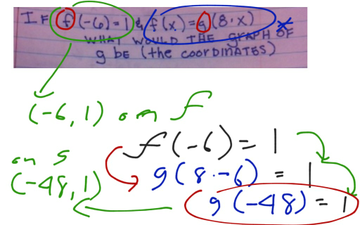 IF f(-6)=1 & f(x)=g(8·x)
WHAT WOULD THE GRAPH OF
g BE (the coordinates)
(-6, 1) on f
f(-6) = 1
on g
g(8·-6) = 1
(-48, 1)
g(-48) = 1